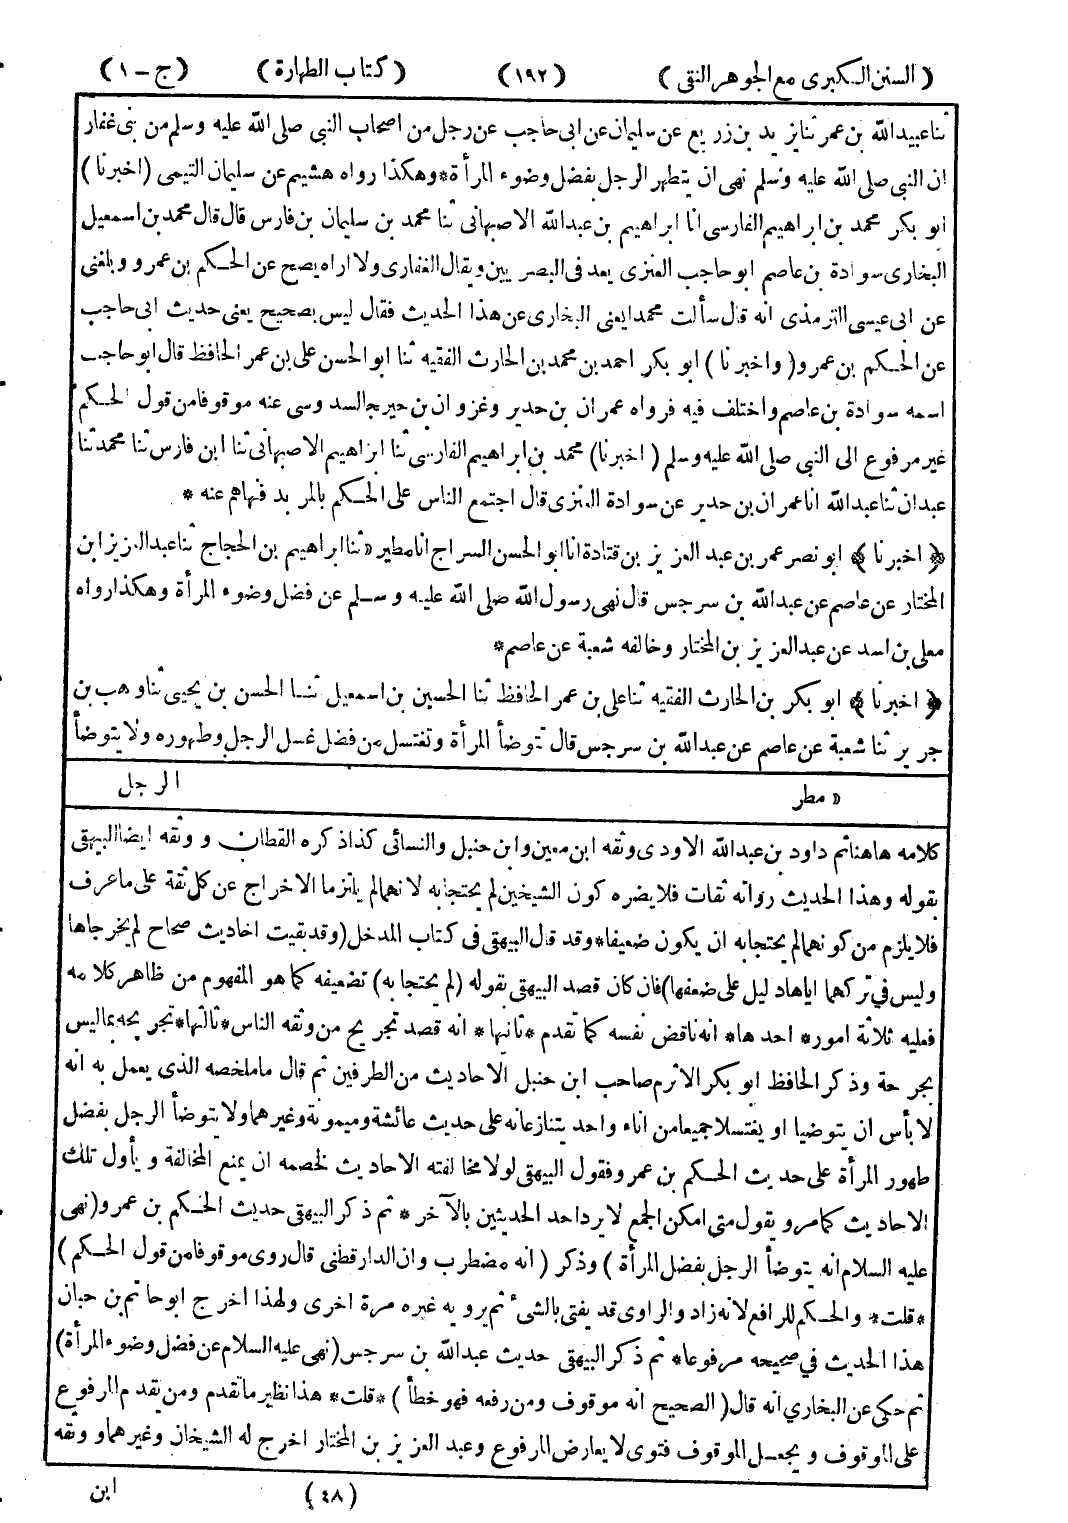 ( السنن الكبرى مع الجوهر النقى ) ( ١٩٢ ) ( كتاب الطهارة ) ( ج - ١ )
ثنا عبيد الله بن عمر ثنا يزيد بن زريع عن سليمان عن ابى حاجب عن رجل من اصحاب النبي صلى الله عليه وسلم من بنى غفار
ان النبي صلى الله عليه وسلم نهى ان يتطهر الرجل بفضل وضوء المرأة * وهكذا رواه هشيم عن سليمان التيمى ( اخبرنا )
ابو بكر محمد بن ابراهيم الفارسى انا ابراهيم بن عبدالله الاصبهانى ثنا محمد بن سليمان بن فارس قال قال محمد بن اسمعيل
البخارى سوادة بن عاصم ابو حاجب العنزى يعد فى البصريين ويقال الغفارى ولا اراه يصح عن الحكم بن عمرو وبلغنى
عن ابى عيسى الترمذى انه قال سألت محمدا يعنى البخارى عن هذا الحديث فقال ليس بصحيح يعنى حديث ابى حاجب
عن الحكم بن عمرو ( واخبرنا ) ابو بكر احمد بن محمد بن الحارث الفقيه ثنا ابو الحسن على بن عمر الحافظ قال ابو حاجب
اسمه سوادة بن عاصم واختلف فيه فرواه عمران بن حدير وغزوان بن حجير السدوسى عنه موقوفا من قول الحكم
غير مرفوع الى النبي صلى الله عليه وسلم ( اخبرنا ) محمد بن ابراهيم الفارسى ثنا ابراهيم الاصبهانى ثنا ابن فارس ثنا محمد ثنا
عبدان ثنا عبدالله انا عمران بن حدير عن سوادة العنزى قال اجتمع الناس على الحكم بالمربد فنهاهم عنه *
﴿ اخبرنا ﴾ ابو نصر عمر بن عبد العزيز بن قتادة انا ابو الحسن السراج انا مطير « ثنا ابراهيم بن الحجاج ثنا عبد العزيز ابن
المختار عن عاصم عن عبدالله بن سرجس قال نهى رسول الله صلى الله عليه وسلم عن فضل وضوء المرأة وهكذا رواه
معلى بن اسد عن عبد العزيز بن المختار وخالفه شعبة عن عاصم *
﴿ اخبرنا ﴾ ابو بكر بن الحارث الفقيه ثنا على بن عمر الحافظ ثنا الحسين بن اسمعيل ثنا الحسن بن يحيى ثنا وهب بن
جرير ثنا شعبة عن عاصم عن عبدالله بن سرجس قال تتوضأ المرأة وتغتسل من فضل غسل الرجل وطهوره ولا يتوضأ
الرجل
« مطر
كلامه هاهنا ثم داود بن عبدالله الاودى وثقه ابن معين وابن حنبل والنسائى كذا ذكره القطان ووثقه ايضا البيهقى
بقوله وهذا الحديث رواته ثقات فلا يضره كون الشيخين لم يحتجا به لانهما لم يلتزما الاخراج عن كل ثقة على ما عرف
فلا يلزم من كونهما لم يحتجا به ان يكون ضعيفا * وقد قال البيهقى فى كتاب المدخل ( وقد بقيت احاديث صحاح لم يخرجاها
وليس في تركهما اياها دليل على ضعفها ) فان كان قصد البيهقى بقوله ( لم يحتجا به ) تضعيفه كما هو المفهوم من ظاهر كلامه
فعليه ثلاثة امور * احدها * انه ناقض نفسه كما تقدم * ثانيها * انه قصد تجريح من وثقه الناس * ثالثها * تجريحه بما ليس
بجرحة وذكر الحافظ ابو بكر الاثرم صاحب ابن حنبل الاحاديث من الطرفين ثم قال ما ملخصه الذى يعمل به انه
لا بأس ان يتوضيا او يغتسلا جميعا من اناء واحد يتنازعانه على حديث عائشة وميمونة وغيرهما ولا يتوضأ الرجل بفضل
طهور المرأة على حديث الحكم بن عمرو فقول البيهقى لولا مخالفته الاحاديث لخصمه ان يمنع المخالفة ويأول تلك
الاحاديث كما مر ويقول متى امكن الجمع لا يرد احد الحديثين بالآخر * ثم ذكر البيهقى حديث الحكم بن عمرو ( نهى
عليه السلام انه يتوضأ الرجل بفضل المرأة ) وذكر ( انه مضطرب وان الدارقطنى قال روى موقوفا من قول الحكم )
* قلت * والحكم للرافع لانه زاد والراوى قد يفتى بالشئ ثم يرويه غيره مرة اخرى ولهذا اخرج ابو حاتم بن حبان
هذا الحديث في صحيحه مرفوعا * ثم ذكر البيهقى حديث عبدالله بن سرجس ( نهى عليه السلام عن فضل وضوء المرأة )
ثم حكى عن البخاري انه قال ( الصحيح انه موقوف ومن رفعه فهو خطأ ) * قلت * هذا نظير ما تقدم ومن يقدم المرفوع
على الموقوف ويجعل الموقوف فتوى لا يعارض المرفوع وعبد العزيز بن المختار اخرج له الشيخان وغيرهما ووثقه
( ٤٨ ) ابن